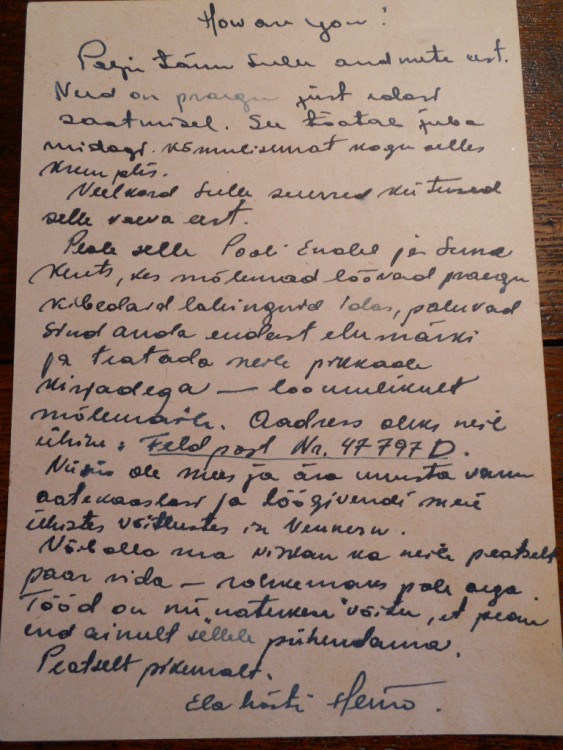 How are you!
Palju tänu Sulle andmete eest.
Need on praegu just edasi
saatmisel. See töötab juba
midagi kogu selles
Veelkord Sulle suured kiitused
selle vaeva eest.
Peale selle Pooli Endel ja Suna
Kents, kes mõlemad löövad praegu
kibedaid lahinguid Idas, paluvad
Sind anda endast elumärki
ja teatada neile pikkade
kirjadega — loomulikult
mõlemaile. Aadress oleks neil
ühine: Feldpost Nr. 47797D.
Niisiis ole mees ja ära unusta vanu
aatekaaslasi ja töögivendi meie
ühistes võitlustes
Võib olla ma viskan ka neile peatselt
paar rida — rohkemaks pole aega.
Tööd on nii "naterkene" võitu, et pean
end ainult "sellele" pühendama.
Peatselt pikemalt.
Ela hästi Heino.